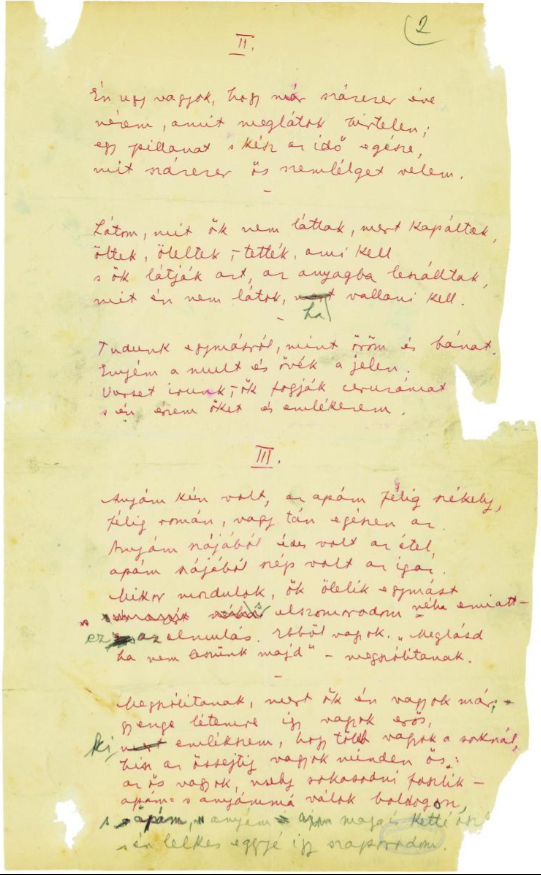 2
II.
Én ugy vagyok, hogy már százezer éve
nézem, amit meglátok hirtelen;
egy pillanat s kész az idő egésze,
mit százezer ős szemlélget velem.
Látom, mit ők nem láttak, mert kapáltak,
öltek, öleltek, – tették, ami kell
s ők látják azt, az anyagba leszálltak,
mit én nem látok, ha vallani kell.
Tudunk egymásról, mint öröm és bánat.
Enyém a mult és övék a jelen.
Verset irunk, – ők fogják ceruzámat
s én érzem őket és emlékezem.
III.
Anyám kún volt, az apám félig székely,
félig román, vagy tán egészen az.
Anyám szájából édes volt az étel,
apám szájából szép volt az igaz.
Mikor mozdulok, ők ölelik egymást
elszomorodom néha emiatt –
ez az elmulás. Ebből vagyok. „Meglásd
ha nem leszünk majd" – megszólitanak.
Megszólitanak, mert ők én vagyok már; –
gyenge létemre igy vagyok erős,
ki emlékszem, hogy több vagyok a soknál,
hisz az őssejtig vagyok minden ős:
az ős vagyok, mely sokasodni foszlik –
apám- s anyámmá válok boldogon,
s apám, anyám maga is kettéoszlik
s én lelkes eggyé igy szaporodom